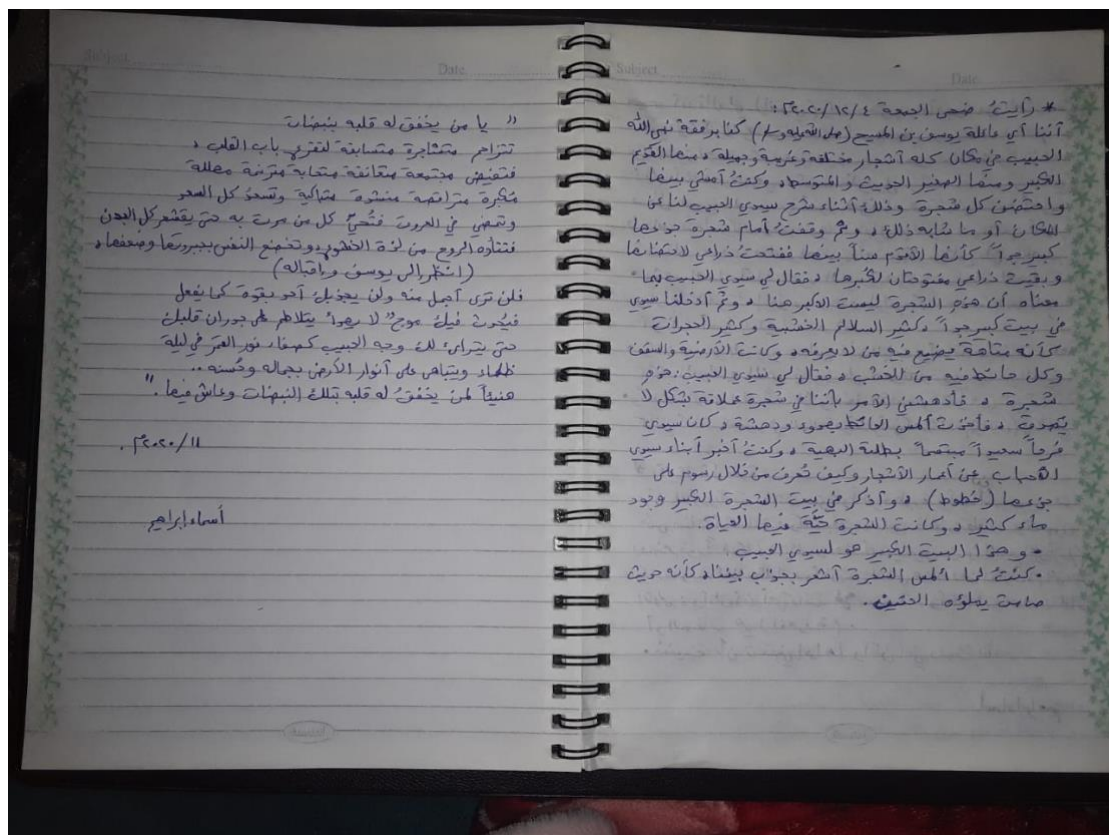 Subject
Date
* رأيتُ ضحى الجمعة ٤/١٢/٢٠٢٠م:
أننا أي عائلة يوسف بن المسيح (صلى الله عليه وسلم) كنا برفقة نبي الله
الحبيب في مكان كله أشجار مختلفة وعريقة وجميلة، منها القديم
الكبير ومنها الصغير الحديث والمتوسط، وكنتُ أمشي بينها
وأحتضن كل شجرة وذلك أثناء شرح سيدي الحبيب لنا عن
المكان أو ما شابه ذلك، وثم وقفتُ أمام شجرة جذعها
كبير جداً كأنها الأقدم سناً بينها ففتحتُ ذراعي لاحتضانها
وبقيت ذراعي مفتوحتان لكبرها، فقال لي سيدي الحبيب بما
معناه أن هذه الشجرة ليست الأكبر هنا، وثم أدخلنا سيدي
في بيت كبير جداً، كثير السلالم الخشبية وكثير الحجرات
كأنه متاهة يضيع فيه من لا يعرفه، وكانت الأرضية والسقف
وكل حائط فيه من الخشب، فقال لي سيدي الحبيب: هذه
شجرة، فأدهشني الأمر بأننا في شجرة عملاقة بشكل لا
يصدق، فأخذت ألمس الحائط بهدوء ودهشة، كان سيدي
فرحاً سعيداً مبتسماً بطلته البهية، وكنتُ أخبر أبناء سيدي
الأحباب عن أعمار الأشجار وكيف تُعرف من خلال رسوم على
جذعها (خطوط)، وأذكر في بيت الشجرة الكبير وجود
ماء كثير، وكانت الشجرة حيَّة فيها الحياة.
• وهذا البيت الكبير هو لسيدي الحبيب
• كنتُ لما ألمس الشجرة أشعر بجذب بيننا، كأنه حديث
صامت يملؤه الحنين.
Subject
Date
" يا من يخفق له قلبه بنبضات
تتزاحم متشاجرة متسابقة لتغزي باب القلب،
فتفيض مجتمعة متعانقة متحابة مترنمة مهللة
مُكبرة متراقصة منشدة متباكية وتسعدُ كل السعد
وتمضي في العروق فتُحيي كل من مرت به حتى يقشعر كل البدن
فتتأوه الروح من لذة الخشوع، وتخضع النفس بجبروتها وضعفها،
(انظر إلى يوسف وإقباله)
فلن ترى أجمل منه ولن يجذبك أحد بقوة كما يفعل
فيُحدث فيك موج" لا يهدأ يتلاطم على جدران قلبك
حتى يتراءى لك وجه الحبيب كصفاء نور القمر في ليلة
ظلماء ويتباهى على أنوار الأرض بجماله وحُسنه..
هنيئاً لمن يخفقُ له قلبه بتلك النبضات وعاش فيها."
١١/٢٠٢٠م.
أسماء إبراهيم